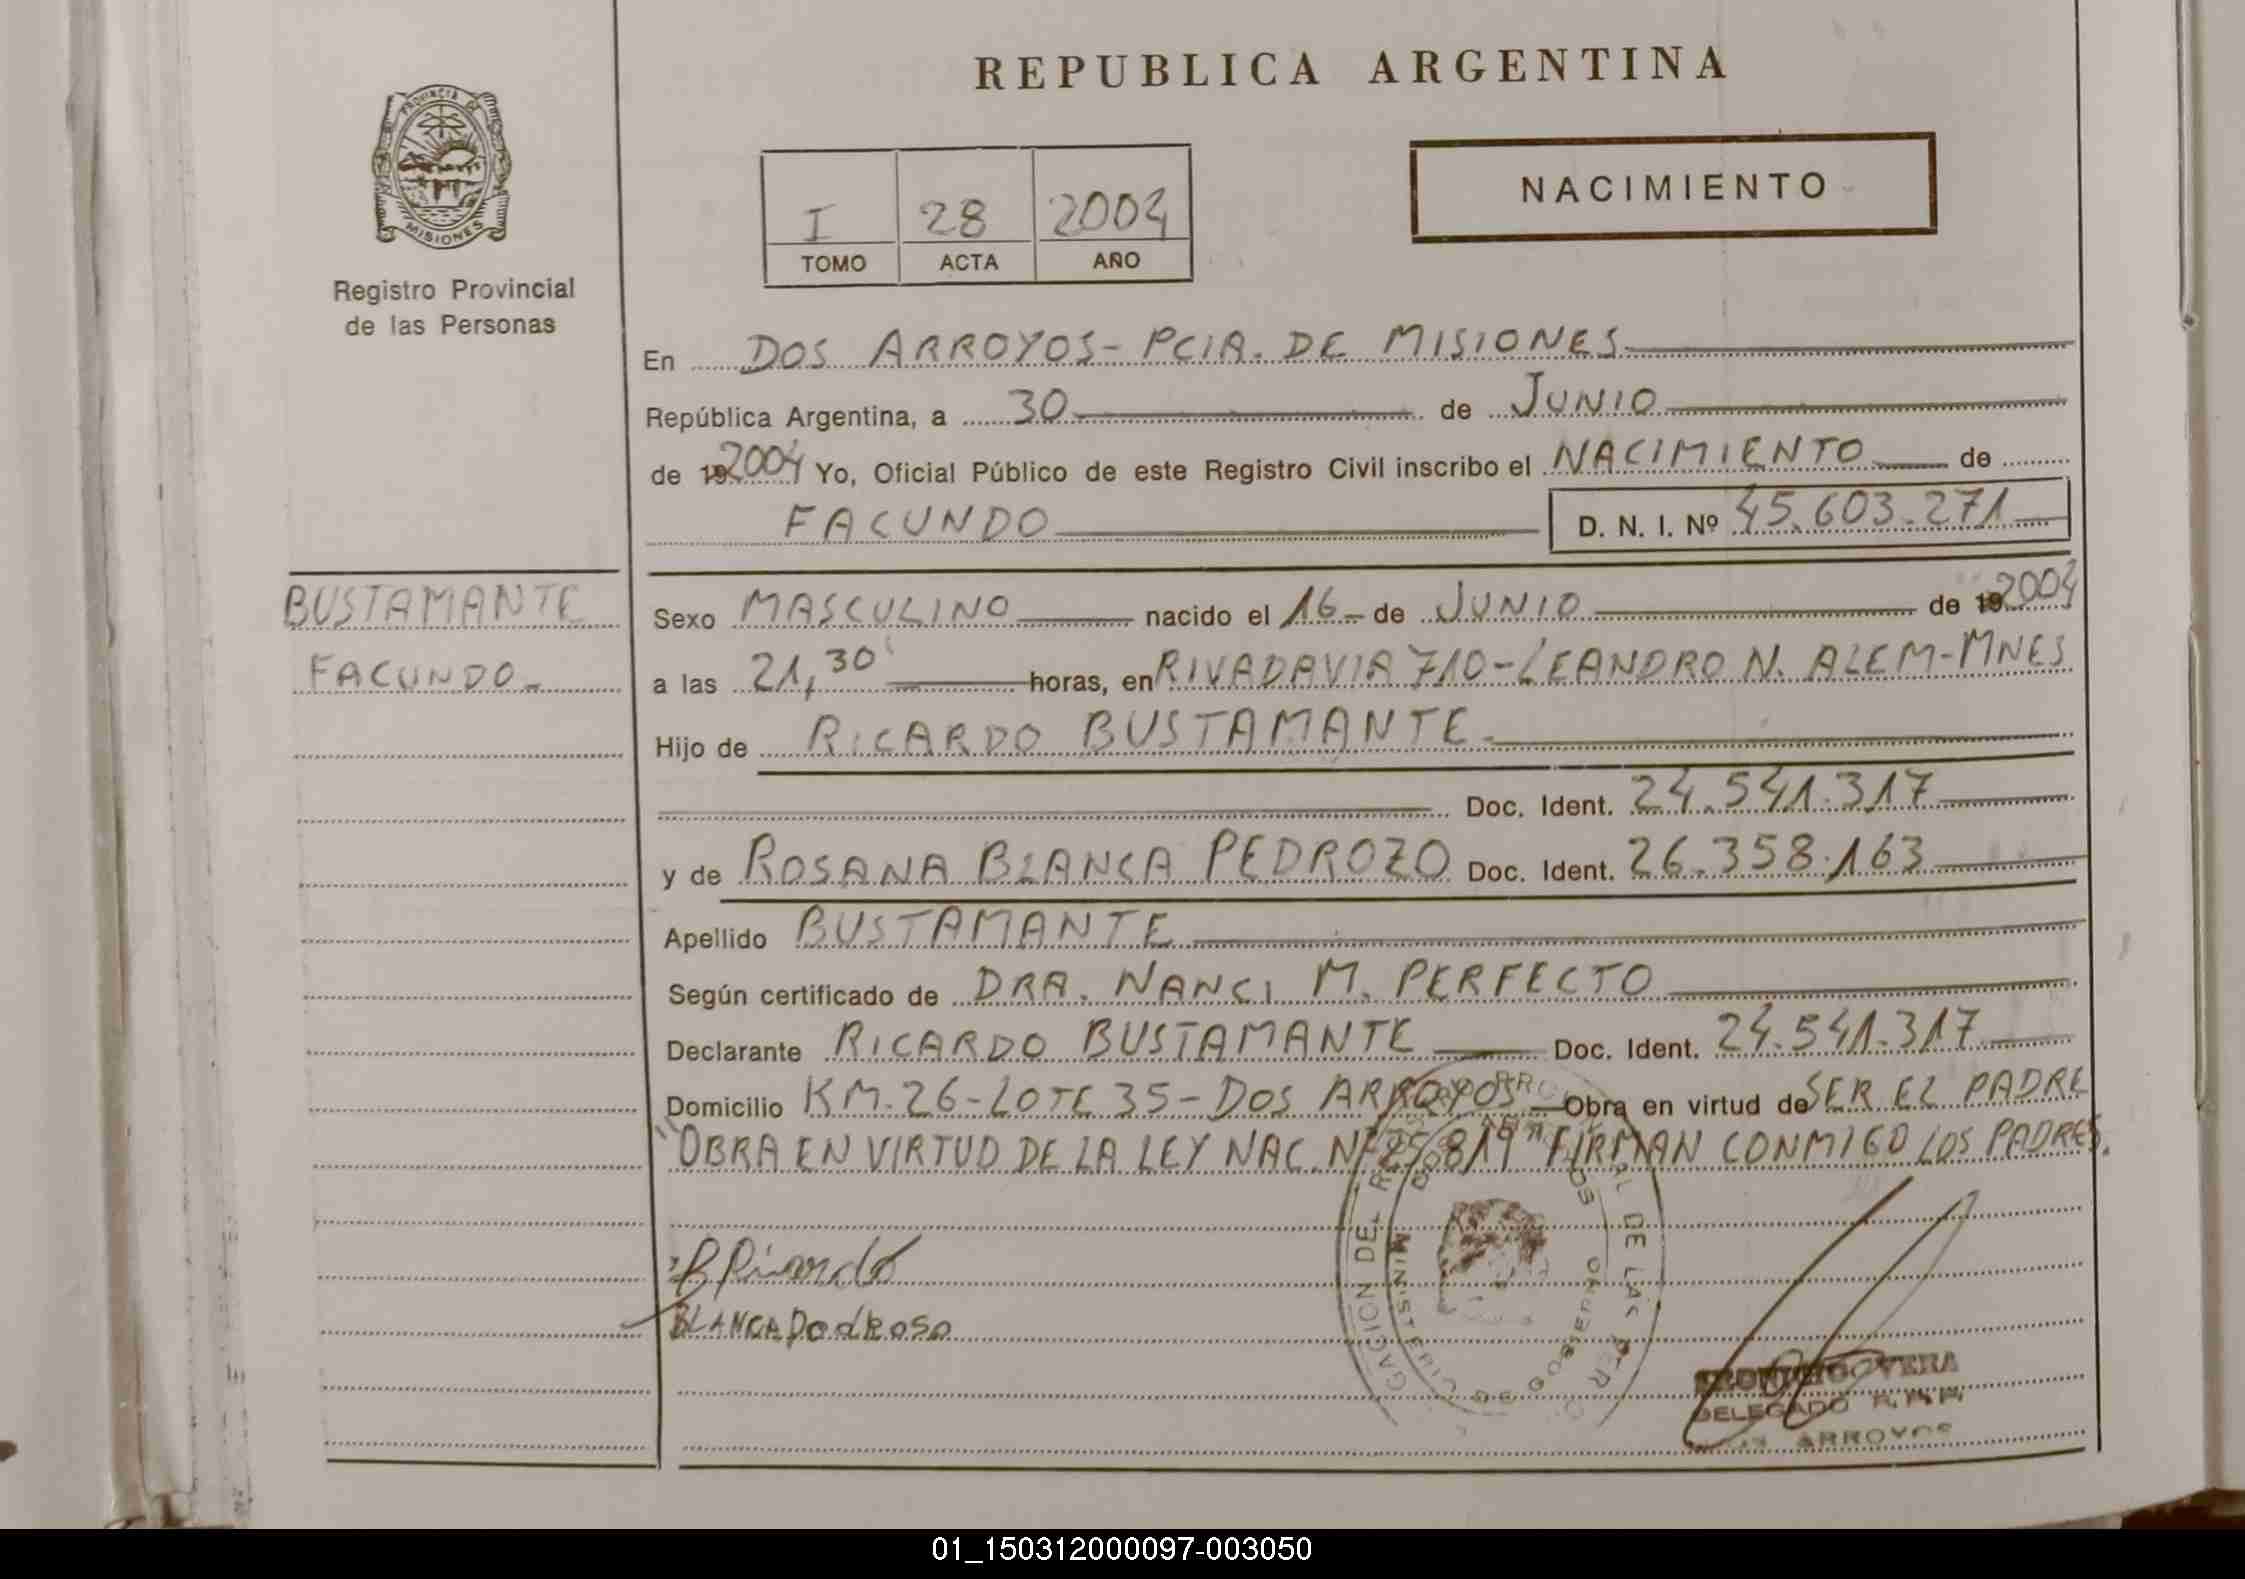 REPUBLICA ARGENTINA
PROVINCIA DE
MISIONES
Registro Provincial
de las Personas
I 28 2004
TOMO ACTA AÑO
NACIMIENTO
En DOS ARROYOS - PCIA. DE MISIONES
República Argentina, a 30 de JUNIO
de 19 2004 Yo, Oficial Público de este Registro Civil inscribo el NACIMIENTO de
FACUNDO D. N. I. Nº 45.603.271
BUSTAMANTE
FACUNDO
Sexo MASCULINO nacido el 16 de JUNIO de 19 2004
a las 21,30 horas, en RIVADAVIA 710 - LEANDRO N. ALEM - MNES
Hijo de RICARDO BUSTAMANTE
Doc. Ident. 24.541.317
y de ROSANA BLANCA PEDROZO Doc. Ident. 26.358.163
Apellido BUSTAMANTE
Según certificado de DRA. NANCI M. PERFECTO
Declarante RICARDO BUSTAMANTE Doc. Ident. 24.541.317
Domicilio KM. 26 - LOTE 35 - DOS ARROYOS Obra en virtud de SER EL PADRE
"OBRA EN VIRTUD DE LA LEY NAC. Nº 25.819" FIRMAN CONMIGO LOS PADRES.
B Ricardo
BLANCA Pedroso
GACION DEL DE LAS PER
MINISTERIO DE GOBIERNO
VERA
DELEGADO
DOS ARROYOS
01_150312000097-003050